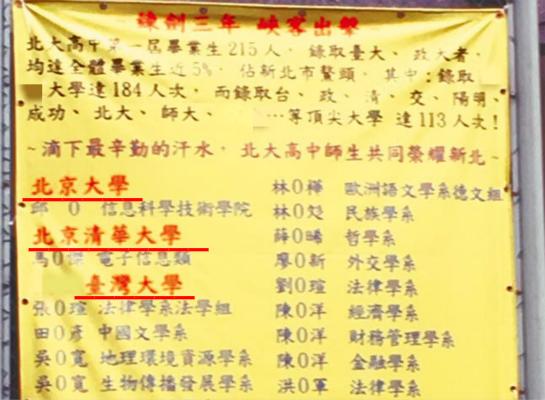 創三年 峽客出擊
北大高中第一屆畢業生215人，錄取臺大、政大者，
均達全體畢業生近5%，佔新北市鰲頭，其中：錄取
大學達184人次，而錄取台、政、清、交、陽明、
成功、北大、師大、…等頂尖大學 達113人次！
~滴下最辛勤的汗水，北大高中師生共同榮耀新北~
北京大學
邱O 信息科學技術學院
北京清華大學
馬O傑 電子信息類
臺灣大學
張O瑄 法律學系法學組
田O彥 中國文學系
吳O寬 地理環境資源學系
吳O寬 生物傳播發展學系
林O樺 歐洲語文學系德文組
林O彣 民族學系
薛O晞 哲學系
廖O新 外交學系
劉O瑄 法律學系
陳O洋 經濟學系
陳O洋 財務管理學系
陳O洋 金融學系
洪O軍 法律學系